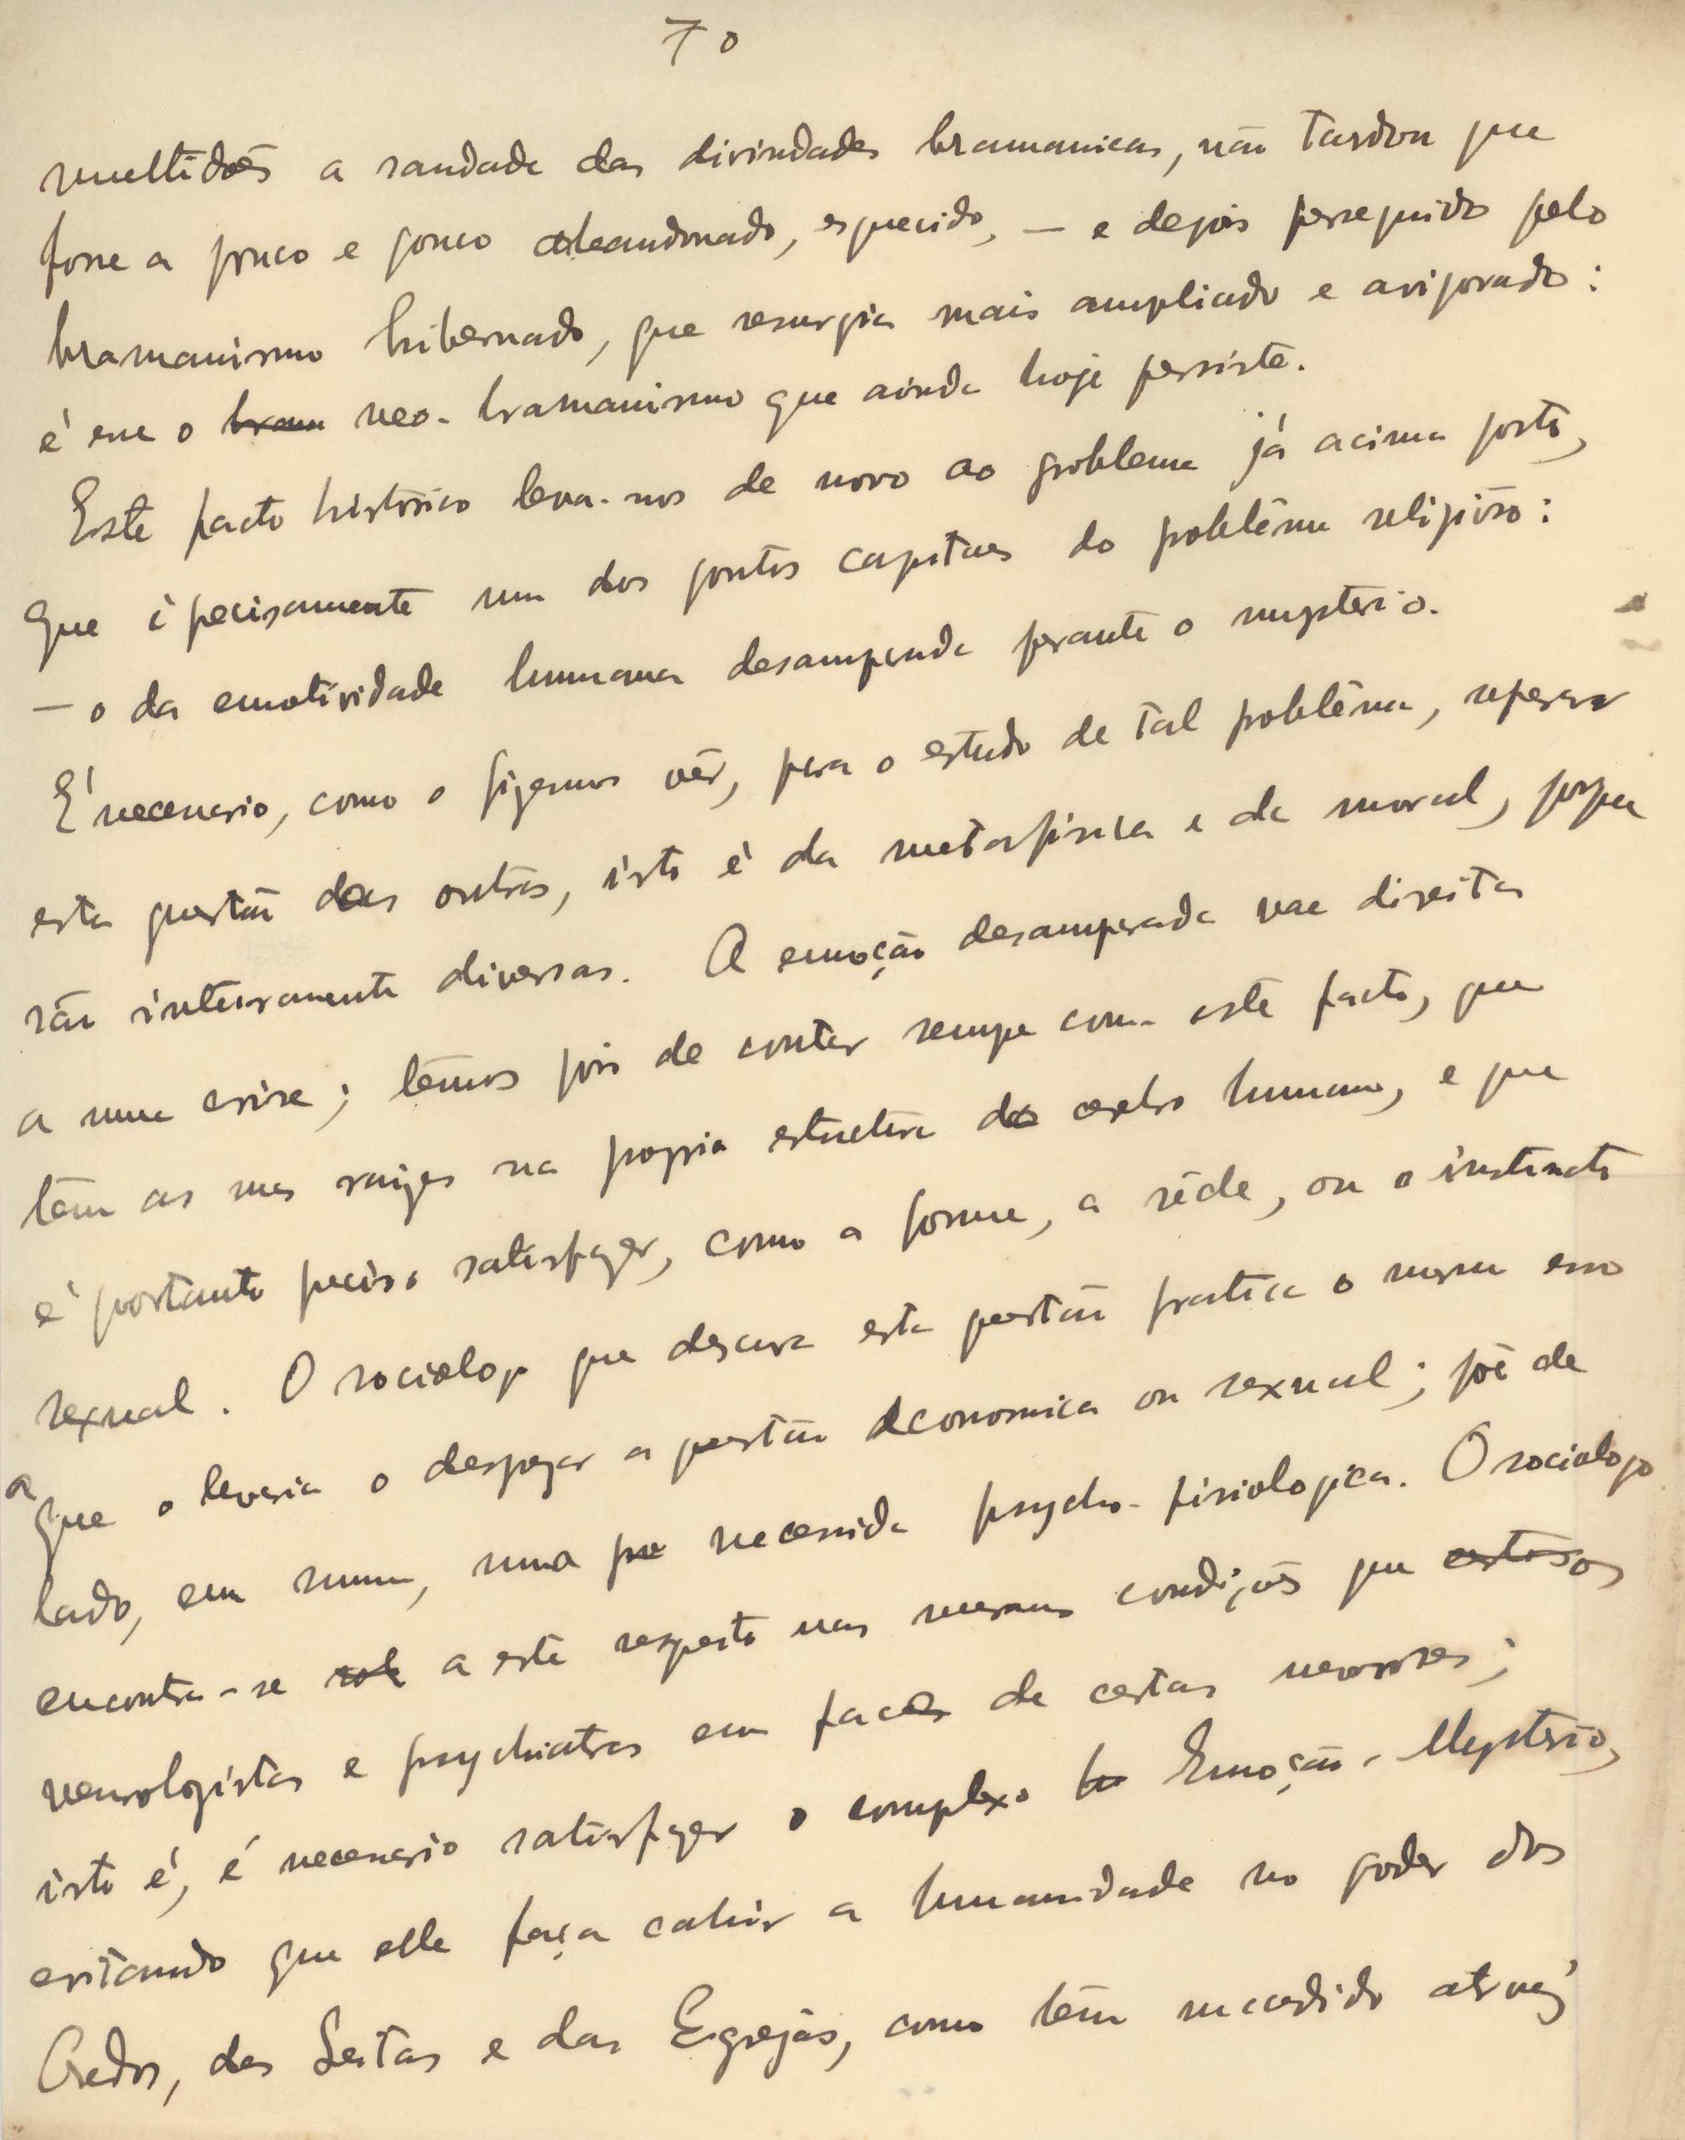 70
multidões a saudade das divindades bramanicas, não tardou que
fosse a pouco e pouco abandonado, esquecido, — e depois perseguido pelo
bramanismo hibernado, que resurgia mais ampliado e avigorado:
é esse o bram neo-bramanismo que ainda hoje persiste.
Este facto historico leva-nos de novo ao problema já acima posto,
que é precisamente um dos pontos capitaes do problêma religiôso:
— o da emotividade humana desamparada perante o mysterio.
É necessario, como o fizemos vêr, para o estudo de tal problêma, separar
esta questão das outras, isto é da metaphisica e da moral, porque
são inteiramente diversas. A emoção desamparada vae direita
a uma crise; têmos pois de contar sempre com este facto, que
têm as suas raizes na propria estructura do cerebro humano, e que
é portanto preciso satisfazer, como a fome, a sêde, ou o instincto
sexual. O sociologo que descura esta questão pratica o mesmo erro
a que o levaria o desprezar a questão economica ou sexual; põe de
lado, em summa, uma necessidade psycho-fisiologica. O sociologo
encontra-se a este respeito nas mesmas condições que os
neurologistas e psychiatras em face de certas nevroses;
isto é, é necessario satisfazer o complexo Emoção-Mysterio,
evitando que elle faça cahir a humanidade no poder dos
Credos, das Seitas e das Egrejas, como têm succedido atravez